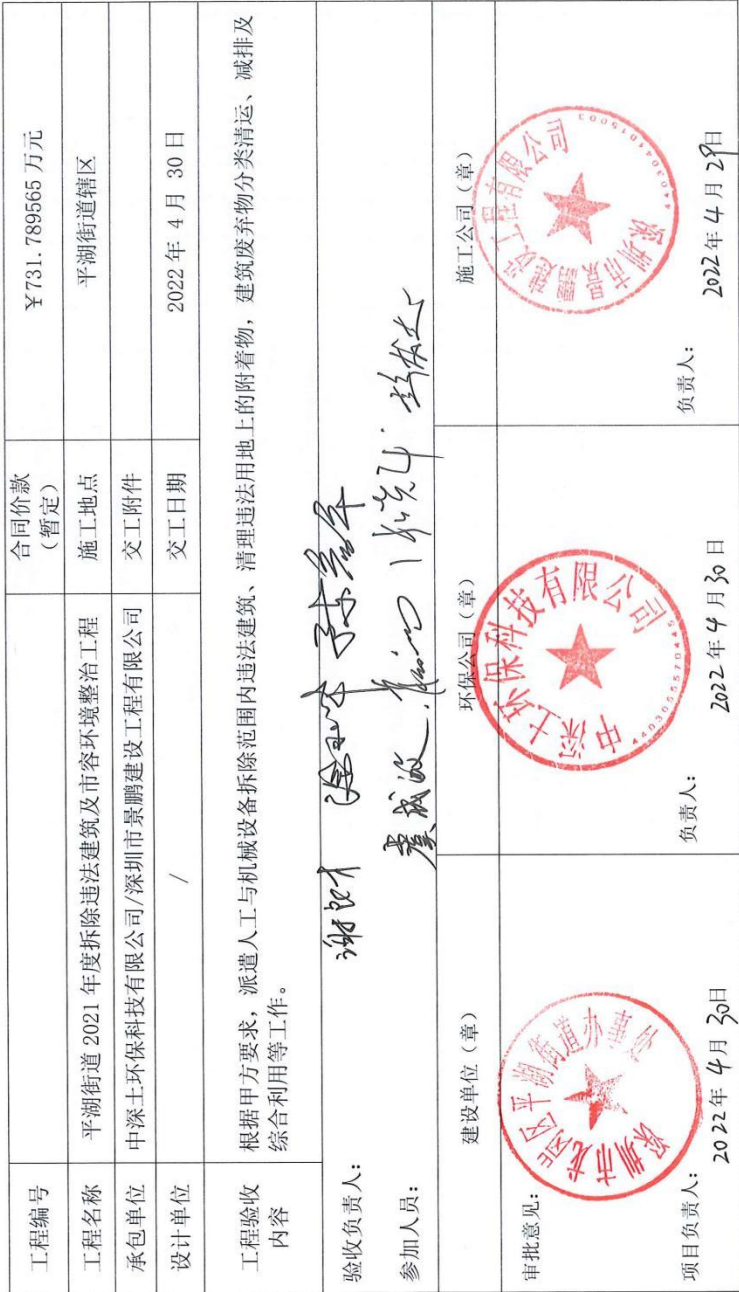 工程编号 合同价款（暂定） ¥731.789565 万元
工程名称 平湖街道 2021 年度拆除违法建筑及市容环境整治工程 施工地点 平湖街道辖区
承包单位 中深土环保科技有限公司/深圳市景鹏建设工程有限公司 交工附件
设计单位 / 交工日期 2022 年 4 月 30 日
工程验收内容 根据甲方要求，派遣人工与机械设备拆除范围内违法建筑、清理违法用地上的附着物，建筑废弃物分类清运、减排及
综合利用等工作。
验收负责人：
参加人员：
建设单位（章） 环保公司（章） 施工公司（章）
审批意见：
深圳市龙岗区平湖街道办事处
中深土环保科技有限公司
4403055570445
深圳市景鹏建设工程有限公司
项目负责人： 负责人： 负责人：
2022年 4月 30日 2022年 4月30日 2022年 4月 29日